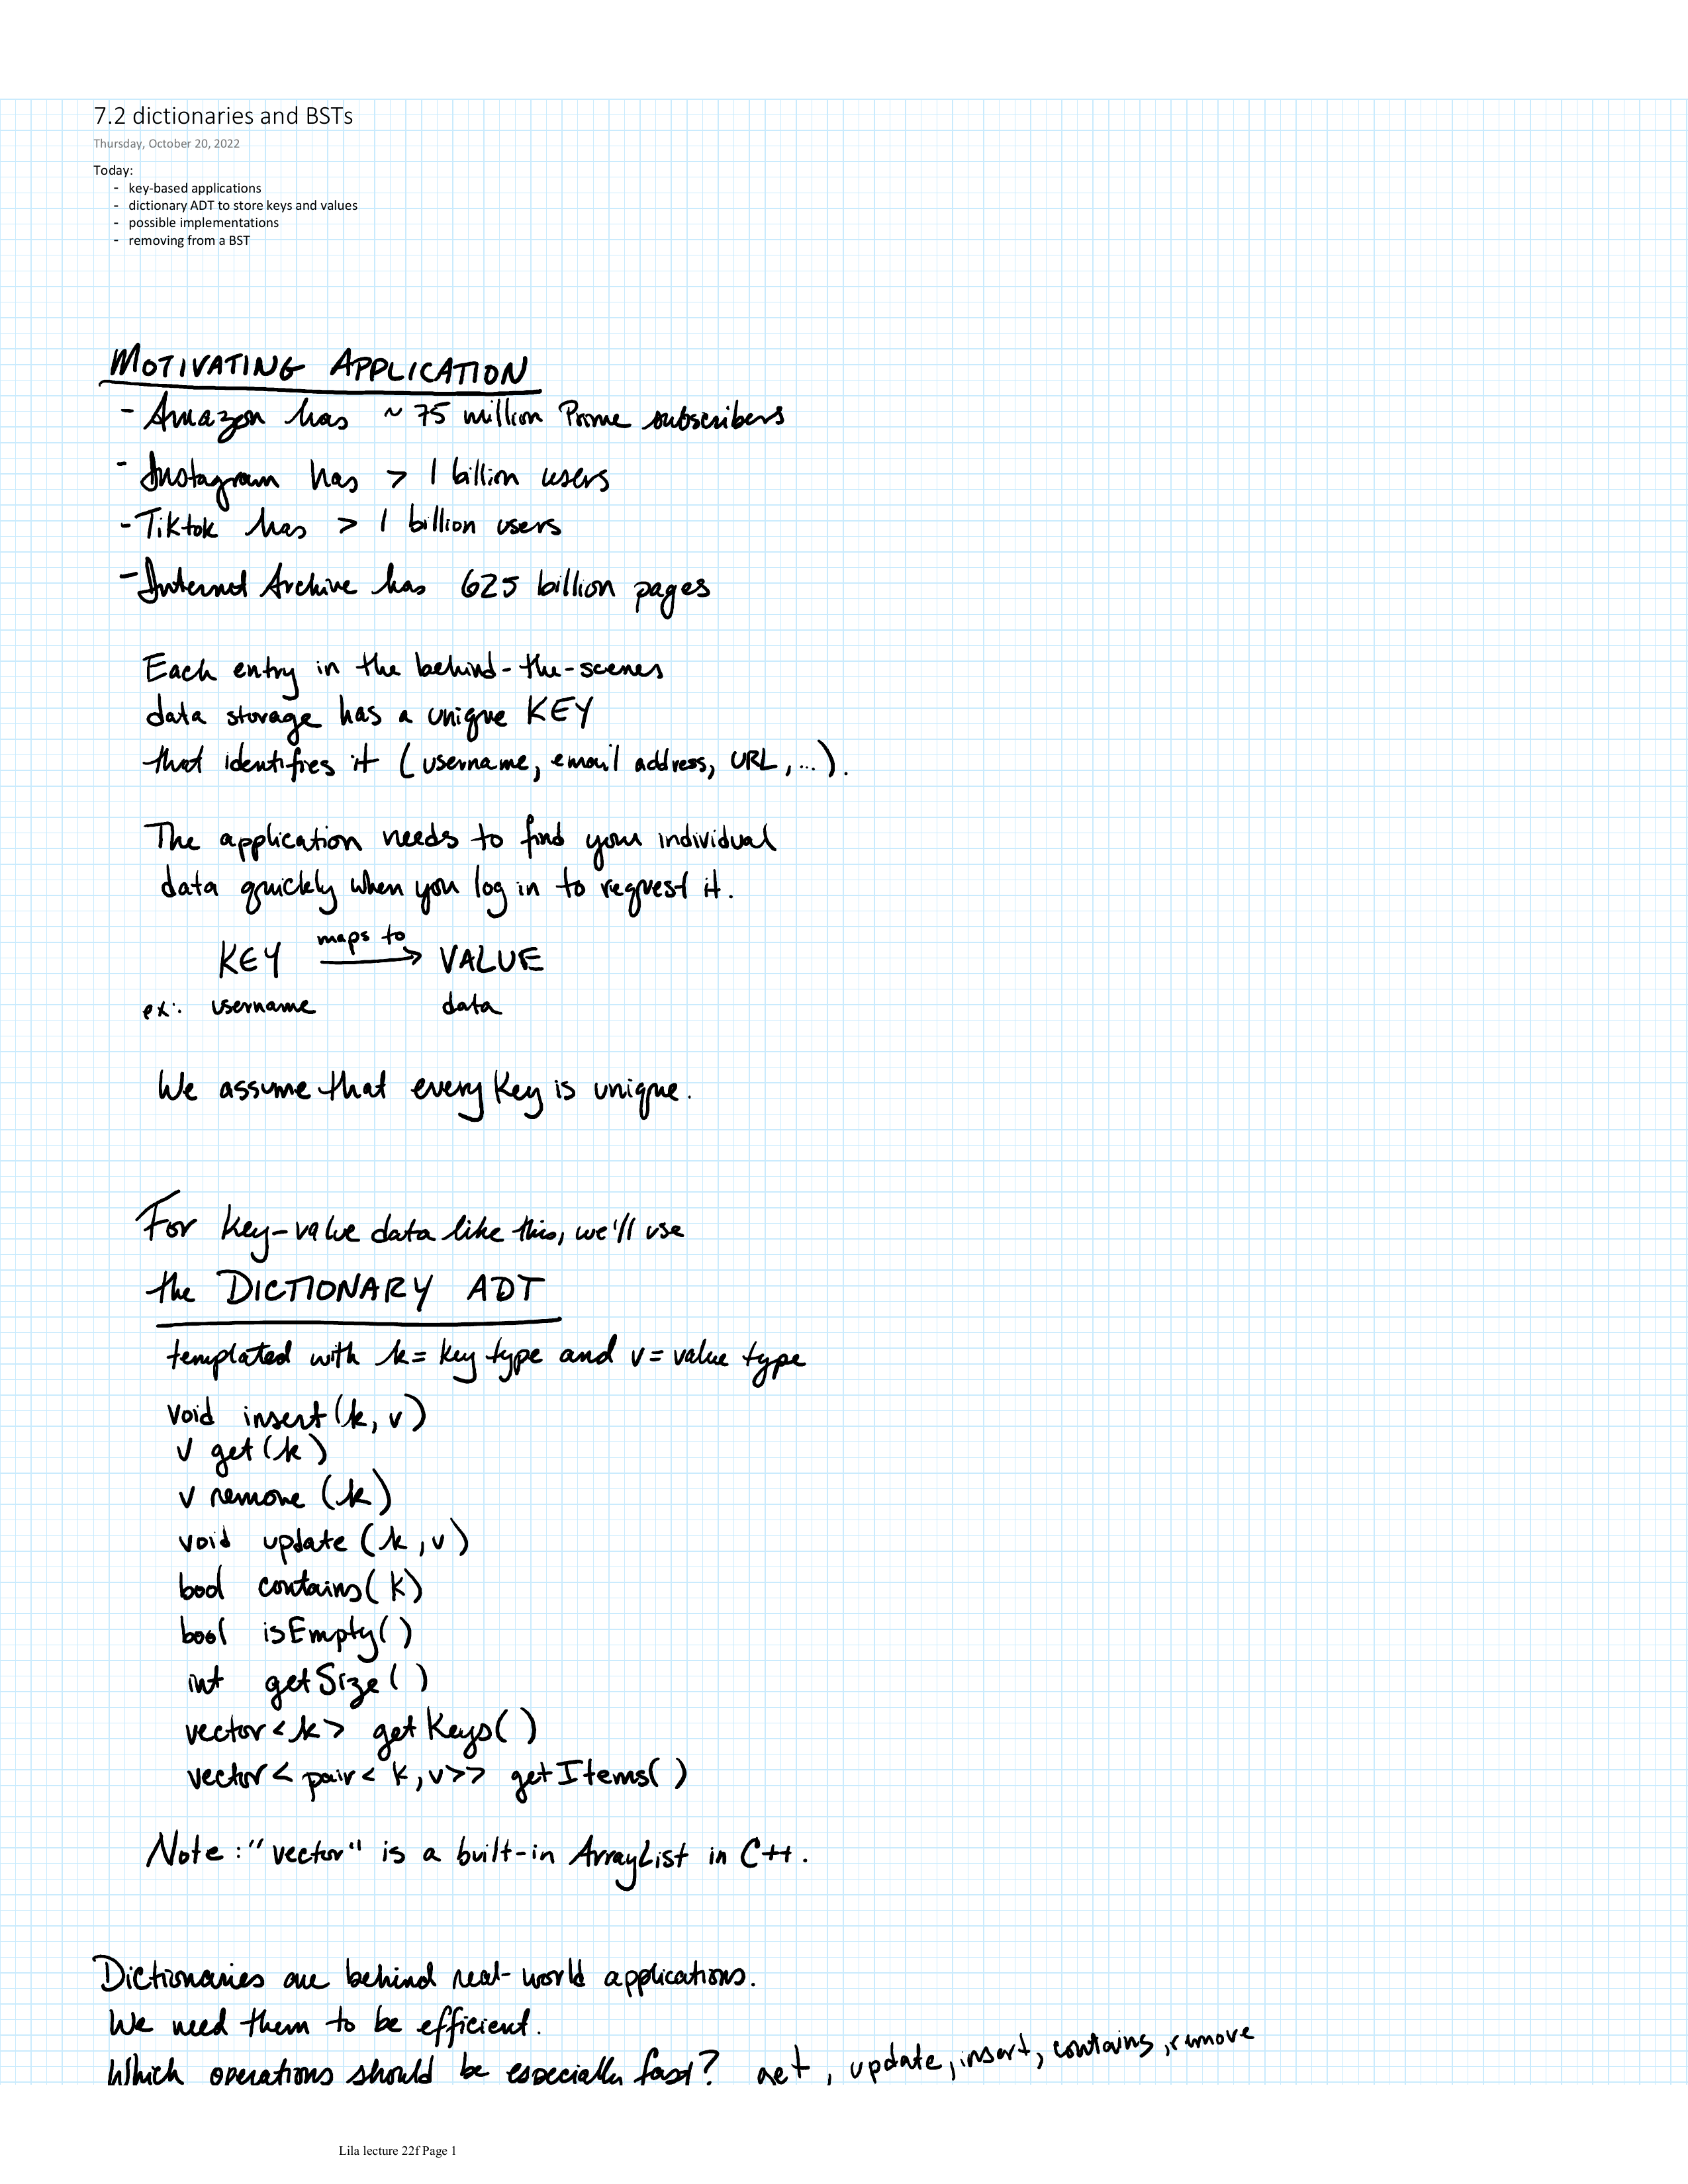 7.2 dictionaries and BSTs
Thursday, October 20, 2022
Today:
- key-based applications
- dictionary ADT to store keys and values
- possible implementations
- removing from a BST
MOTIVATING APPLICATION
- Amazon has ~ 75 million Prime subscribers
- Instagram has > 1 billion users
- Tiktok has > 1 billion users
- Internet Archive has 625 billion pages
Each entry in the behind-the-scenes
data storage has a unique KEY
that identifies it (username, email address, URL, ...).
The application needs to find your individual
data quickly when you log in to request it.
KEY maps to → VALUE
ex: username data
We assume that every key is unique.
For key-value data like this, we'll use
the DICTIONARY ADT
templated with k = key type and v = value type
void insert(k, v)
v get(k)
v remove(k)
void update(k, v)
bool contains(k)
bool isEmpty()
int getSize()
vector<k> getKeys()
vector<pair<k,v>> getItems()
Note: "vector" is a built-in ArrayList in C++.
Dictionaries are behind real-world applications.
We need them to be efficient.
Which operations should be especially fast? get, update, insert, contains, remove
Lila lecture 22f Page 1